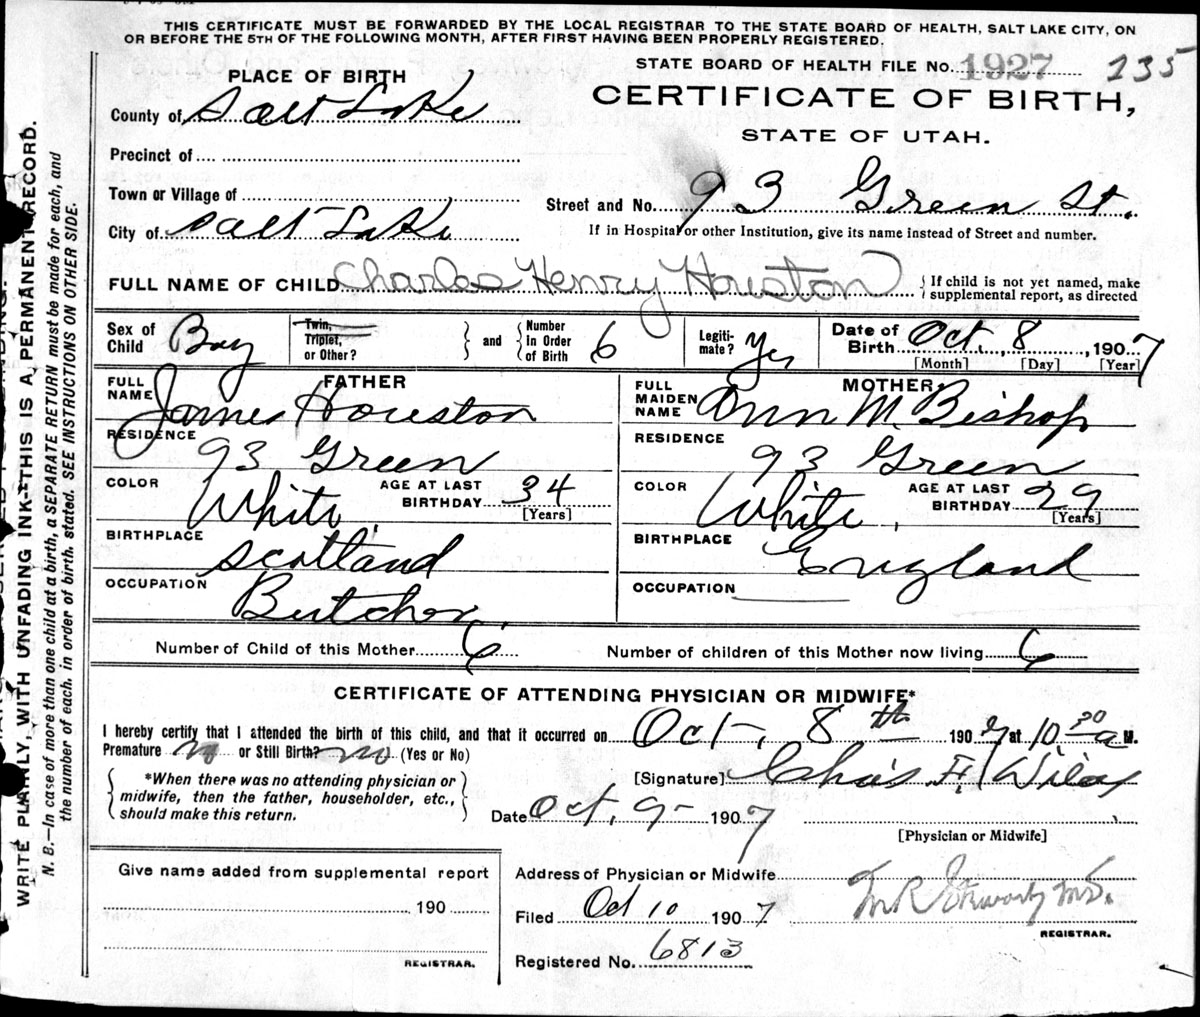 THIS CERTIFICATE MUST BE FORWARDED BY THE LOCAL REGISTRAR TO THE STATE BOARD OF HEALTH, SALT LAKE CITY, ON
OR BEFORE THE 5TH OF THE FOLLOWING MONTH, AFTER FIRST HAVING BEEN PROPERLY REGISTERED.
STATE BOARD OF HEALTH FILE No. 1927 235
PLACE OF BIRTH
CERTIFICATE OF BIRTH,
STATE OF UTAH.
County of Salt Lake
Precinct of
Town or Village of
Street and No. 93 Green St.
City of Salt Lake
If in Hospital or other Institution, give its name instead of Street and number.
FULL NAME OF CHILD Charles Henry Houston
If child is not yet named, make
supplemental report, as directed
Sex of Child Boy
Twin, Triplet, or Other?
and
Number in Order of Birth 6
Legiti-mate? Yes
Date of Birth Oct. 8, 1907
[Month] [Day] [Year]
FATHER
FULL NAME James Houston
RESIDENCE 93 Green
COLOR White
AGE AT LAST BIRTHDAY 34
[Years]
BIRTHPLACE Scotland
OCCUPATION Butcher
MOTHER
FULL MAIDEN NAME Ann M. Bishop
RESIDENCE 93 Green
COLOR White
AGE AT LAST BIRTHDAY 29
[Years]
BIRTHPLACE England
OCCUPATION
Number of Child of this Mother 6
Number of children of this Mother now living 6
CERTIFICATE OF ATTENDING PHYSICIAN OR MIDWIFE*
I hereby certify that I attended the birth of this child, and that it occurred on Oct, 8th 1907 at 10 30 a M.
Premature no or Still Birth? no (Yes or No)
*When there was no attending physician or
midwife, then the father, householder, etc.,
should make this return.
[Signature] Chas F.
Date Oct, 9- 1907
[Physician or Midwife]
Give name added from supplemental report
190
REGISTRAR.
Address of Physician or Midwife
Filed Oct 10 1907
REGISTRAR.
Registered No. 6813
WRITE PLAINLY, WITH UNFADING INK-THIS IS A PERMANENT RECORD.
N. B.—In case of more than one child at a birth, a SEPARATE RETURN must be made for each, and
the number of each, in order of birth, stated. SEE INSTRUCTIONS ON OTHER SIDE.